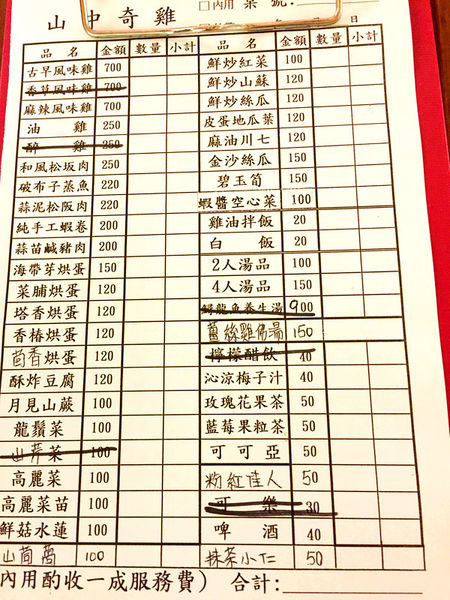 山中奇雞
□內用 桌號:
日
品名 金額 數量 小計
古早風味雞 700
香草風味雞 700
麻辣風味雞 700
油雞 250
醉雞 250
和風松坂肉 250
破布子蒸魚 220
蒜泥松阪肉 220
純手工蝦卷 200
蒜苗鹹豬肉 200
海帶芽烘蛋 150
菜脯烘蛋 120
塔香烘蛋 120
香椿烘蛋 120
茴香烘蛋 120
酥炸豆腐 120
月見山蕨 100
龍鬚菜 100
山芹菜 100
高麗菜 100
高麗菜苗 100
鮮菇水蓮 100
山茼蒿 100
品名 金額 數量 小計
鮮炒紅菜 100
鮮炒山蘇 120
鮮炒絲瓜 120
皮蛋地瓜葉 120
麻油川七 120
金沙絲瓜 150
碧玉筍 150
蝦醬空心菜 100
雞油拌飯 20
白飯 20
2人湯品 100
4人湯品 150
鱘龍魚養生湯 900
薑絲雞佛湯 150
檸檬醋飲 40
沁涼梅子汁 40
玫瑰花果茶 50
藍莓果粒茶 50
可可亞 50
粉紅佳人 50
可樂 30
啤酒 40
抹茶小仁 50
內用酌收一成服務費) 合計: